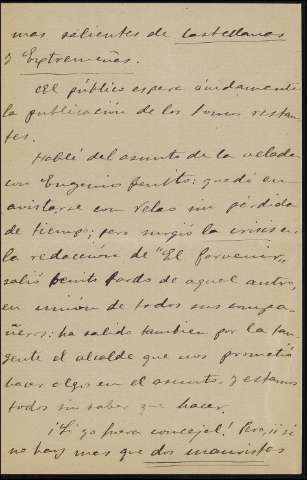 mas salientes de Castellanas
y Extremeñas.
El público espera ávidamente
la publicación de los tomos restan-
tes.
Hablé del asunto de la velada
con Eugenio Benito: quedó en
avistarse con Velas sin pérdida
de tiempo; pero surgió la crisis en
la redacción de "El Porvenir",
salió Benito Pardo de aquel antro,
en unión de todos sus compa-
ñeros: ha salido tambien por la tan-
gente el alcalde que nos prometió
hacer algo en el asunto, y estamos
todos sin saber que hacer.
¡Si yo fuera concejal! Pero, si si
no hay mas que dos mauristas